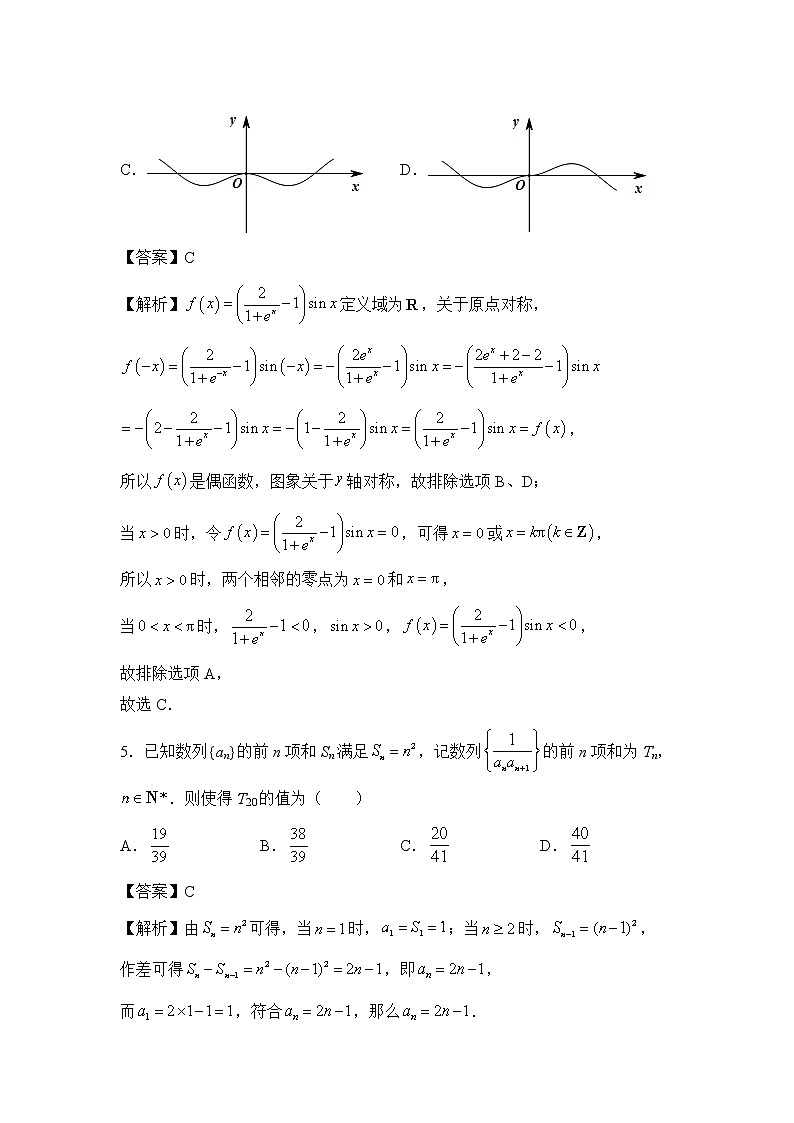 y y
C. O x D. O x
【答案】C
【解析】f(x)=(2/(1+eˣ)−1)sin x定义域为R,关于原点对称,
f(−x)=(2/(1+e⁻ˣ)−1)sin(−x)=−(2eˣ/(1+eˣ)−1)sin x=−((2eˣ+2−2)/(1+eˣ)−1)sin x
=−(2−2/(1+eˣ)−1)sin x=−(1−2/(1+eˣ))sin x=(2/(1+eˣ)−1)sin x=f(x),
所以f(x)是偶函数,图象关于y轴对称,故排除选项B、D;
当x>0时,令f(x)=(2/(1+eˣ)−1)sin x=0,可得x=0或x=kπ(k∈Z),
所以x>0时,两个相邻的零点为x=0和x=π,
当0<x<π时,2/(1+eˣ)−1<0,sin x>0,f(x)=(2/(1+eˣ)−1)sin x<0,
故排除选项A,
故选C.
5.已知数列{aₙ}的前n项和Sₙ满足Sₙ=n²,记数列{1/(aₙaₙ₊₁)}的前n项和为Tₙ,
n∈N*.则使得T₂₀的值为( )
A.19/39 B.38/39 C.20/41 D.40/41
【答案】C
【解析】由Sₙ=n²可得,当n=1时,a₁=S₁=1;当n≥2时,Sₙ₋₁=(n−1)²,
作差可得Sₙ−Sₙ₋₁=n²−(n−1)²=2n−1,即aₙ=2n−1,
而a₁=2×1−1=1,符合aₙ=2n−1,那么aₙ=2n−1.